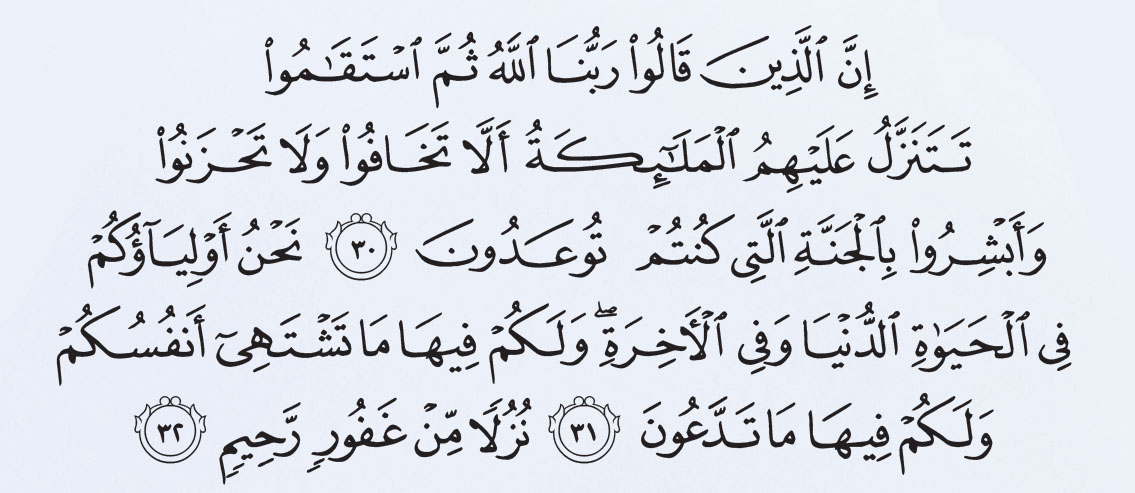 إِنَّ ٱلَّذِينَ قَالُوا۟ رَبُّنَا ٱللَّهُ ثُمَّ ٱسْتَقَـٰمُوا۟
تَتَنَزَّلُ عَلَيْهِمُ ٱلْمَلَـٰٓئِكَةُ أَلَّا تَخَافُوا۟ وَلَا تَحْزَنُوا۟
وَأَبْشِرُوا۟ بِٱلْجَنَّةِ ٱلَّتِى كُنتُمْ تُوعَدُونَ ٣٠ نَحْنُ أَوْلِيَآؤُكُمْ
فِى ٱلْحَيَوٰةِ ٱلدُّنْيَا وَفِى ٱلْـَٔاخِرَةِ ۖ وَلَكُمْ فِيهَا مَا تَشْتَهِىٓ أَنفُسُكُمْ
وَلَكُمْ فِيهَا مَا تَدَّعُونَ ٣١ نُزُلًا مِّنْ غَفُورٍ رَّحِيمٍ ٣٢